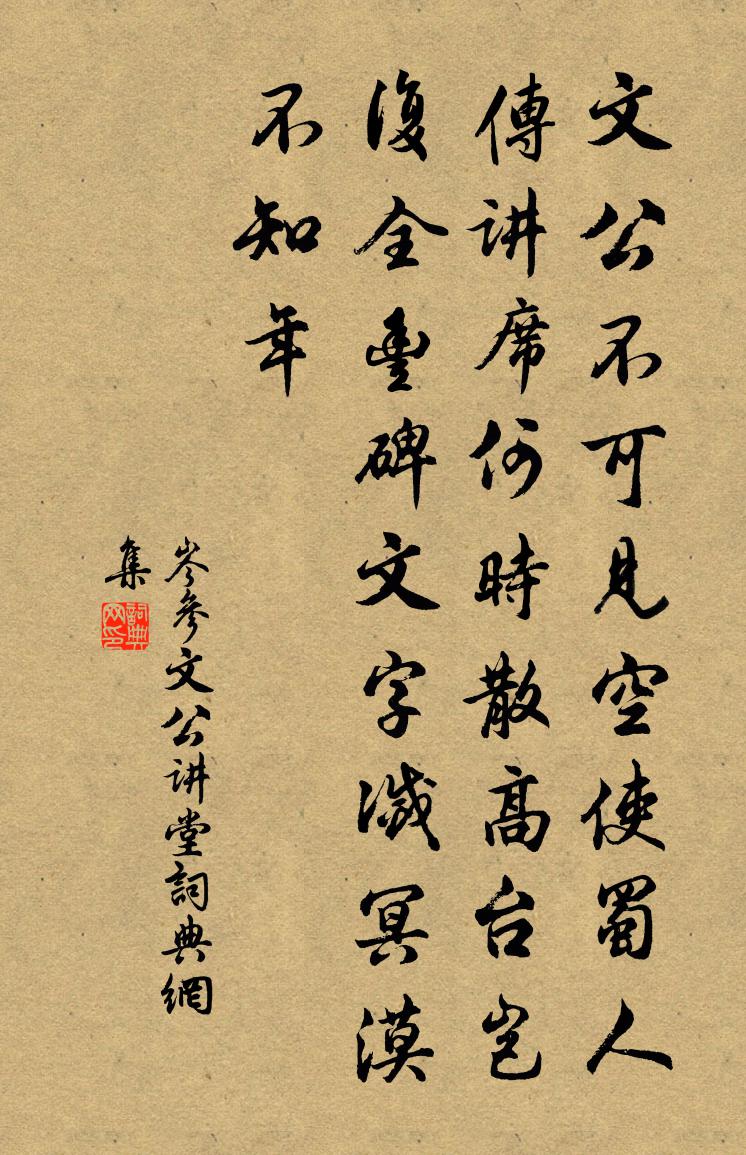 文公不可見空使蜀人
傳讲席何時散高台岂
復全豐碑文字滅冥漠
不知年
岑參文公讲堂詞典網
集
詞典
网印